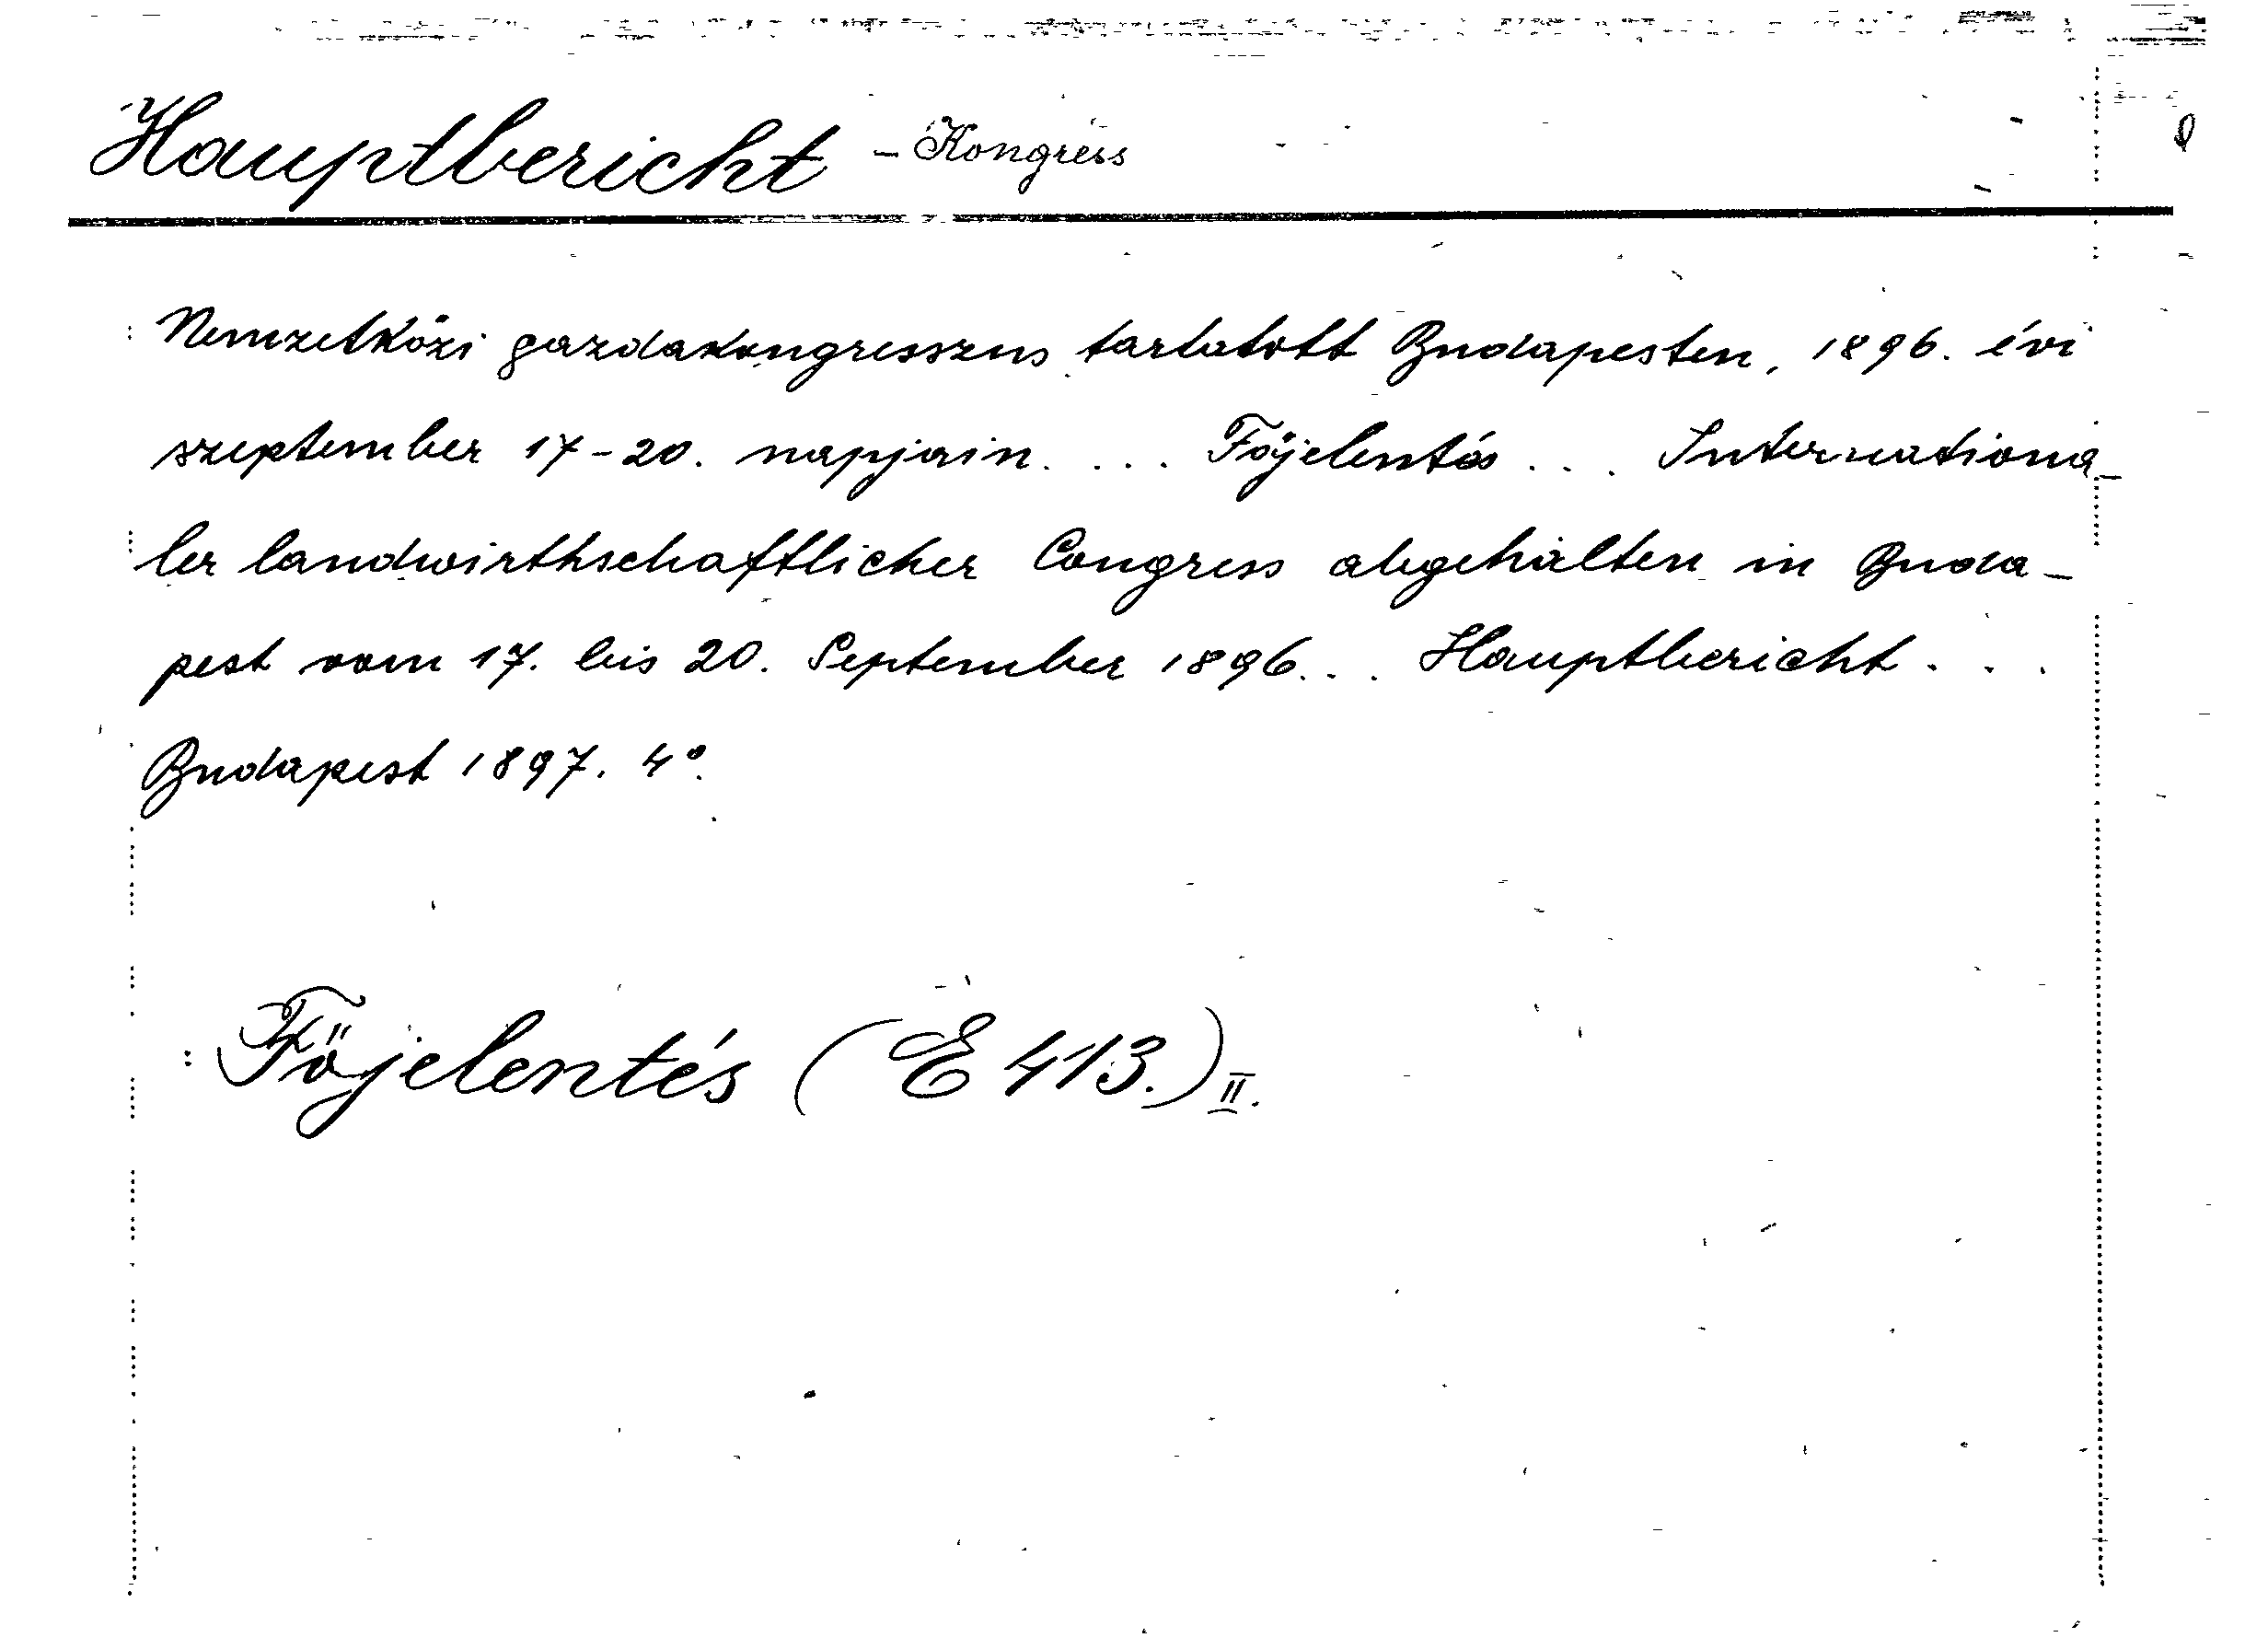 Hauptbericht - Kongress
Nemzetközi gazdakongresszus tartatott Budapesten, 1896. évi
szeptember 17-20. napjain. ... Főjelentés ... Internationa-
ler landwirthschaftlicher Congress abgehalten in Buda-
pest vom 17. bis 20. September 1896... Hauptbericht...
Budapest 1897. 4°.
Főjelentés (E 413.) II.